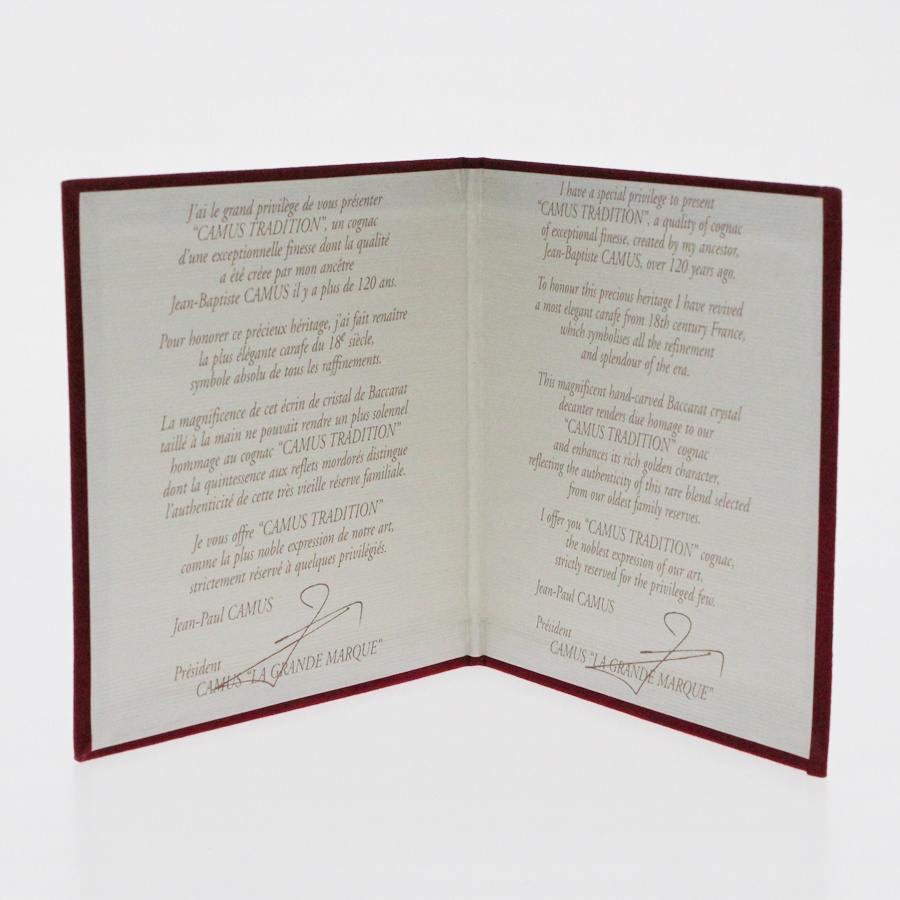 J'ai le grand privilège de vous présenter
"CAMUS TRADITION", un cognac
d'une exceptionnelle finesse dont la qualité
a été créee par mon ancêtre
Jean-Baptiste CAMUS il y a plus de 120 ans.
Pour honorer ce précieux héritage, j'ai fait renaître
la plus élégante carafe du 18e siècle,
symbole absolu de tous les raffinements.
La magnificence de cet écrin de cristal de Baccarat
taillé à la main ne pouvait rendre un plus solennel
hommage au cognac "CAMUS TRADITION"
dont la quintessence aux reflets mordorés distingue
l'authenticité de cette très vieille réserve familiale.
Je vous offre "CAMUS TRADITION"
comme la plus noble expression de notre art,
strictement réservé à quelques privilégiés.
Jean-Paul CAMUS
Président
CAMUS "LA GRANDE MARQUE"
I have a special privilege to present
"CAMUS TRADITION", a quality of cognac
of exceptional finesse, created by my ancestor,
Jean-Baptiste CAMUS, over 120 years ago.
To honour this precious heritage I have revived
a most elegant carafe from 18th century France,
which symbolises all the refinement
and splendour of the era.
This magnificent hand-carved Baccarat crystal
decanter renders due homage to our
"CAMUS TRADITION" cognac
and enhances its rich golden character,
reflecting the authenticity of this rare blend selected
from our oldest family reserves.
I offer you "CAMUS TRADITION" cognac,
the noblest expression of our art,
strictly reserved for the privileged few.
Jean-Paul CAMUS
Président
CAMUS "LA GRANDE MARQUE"